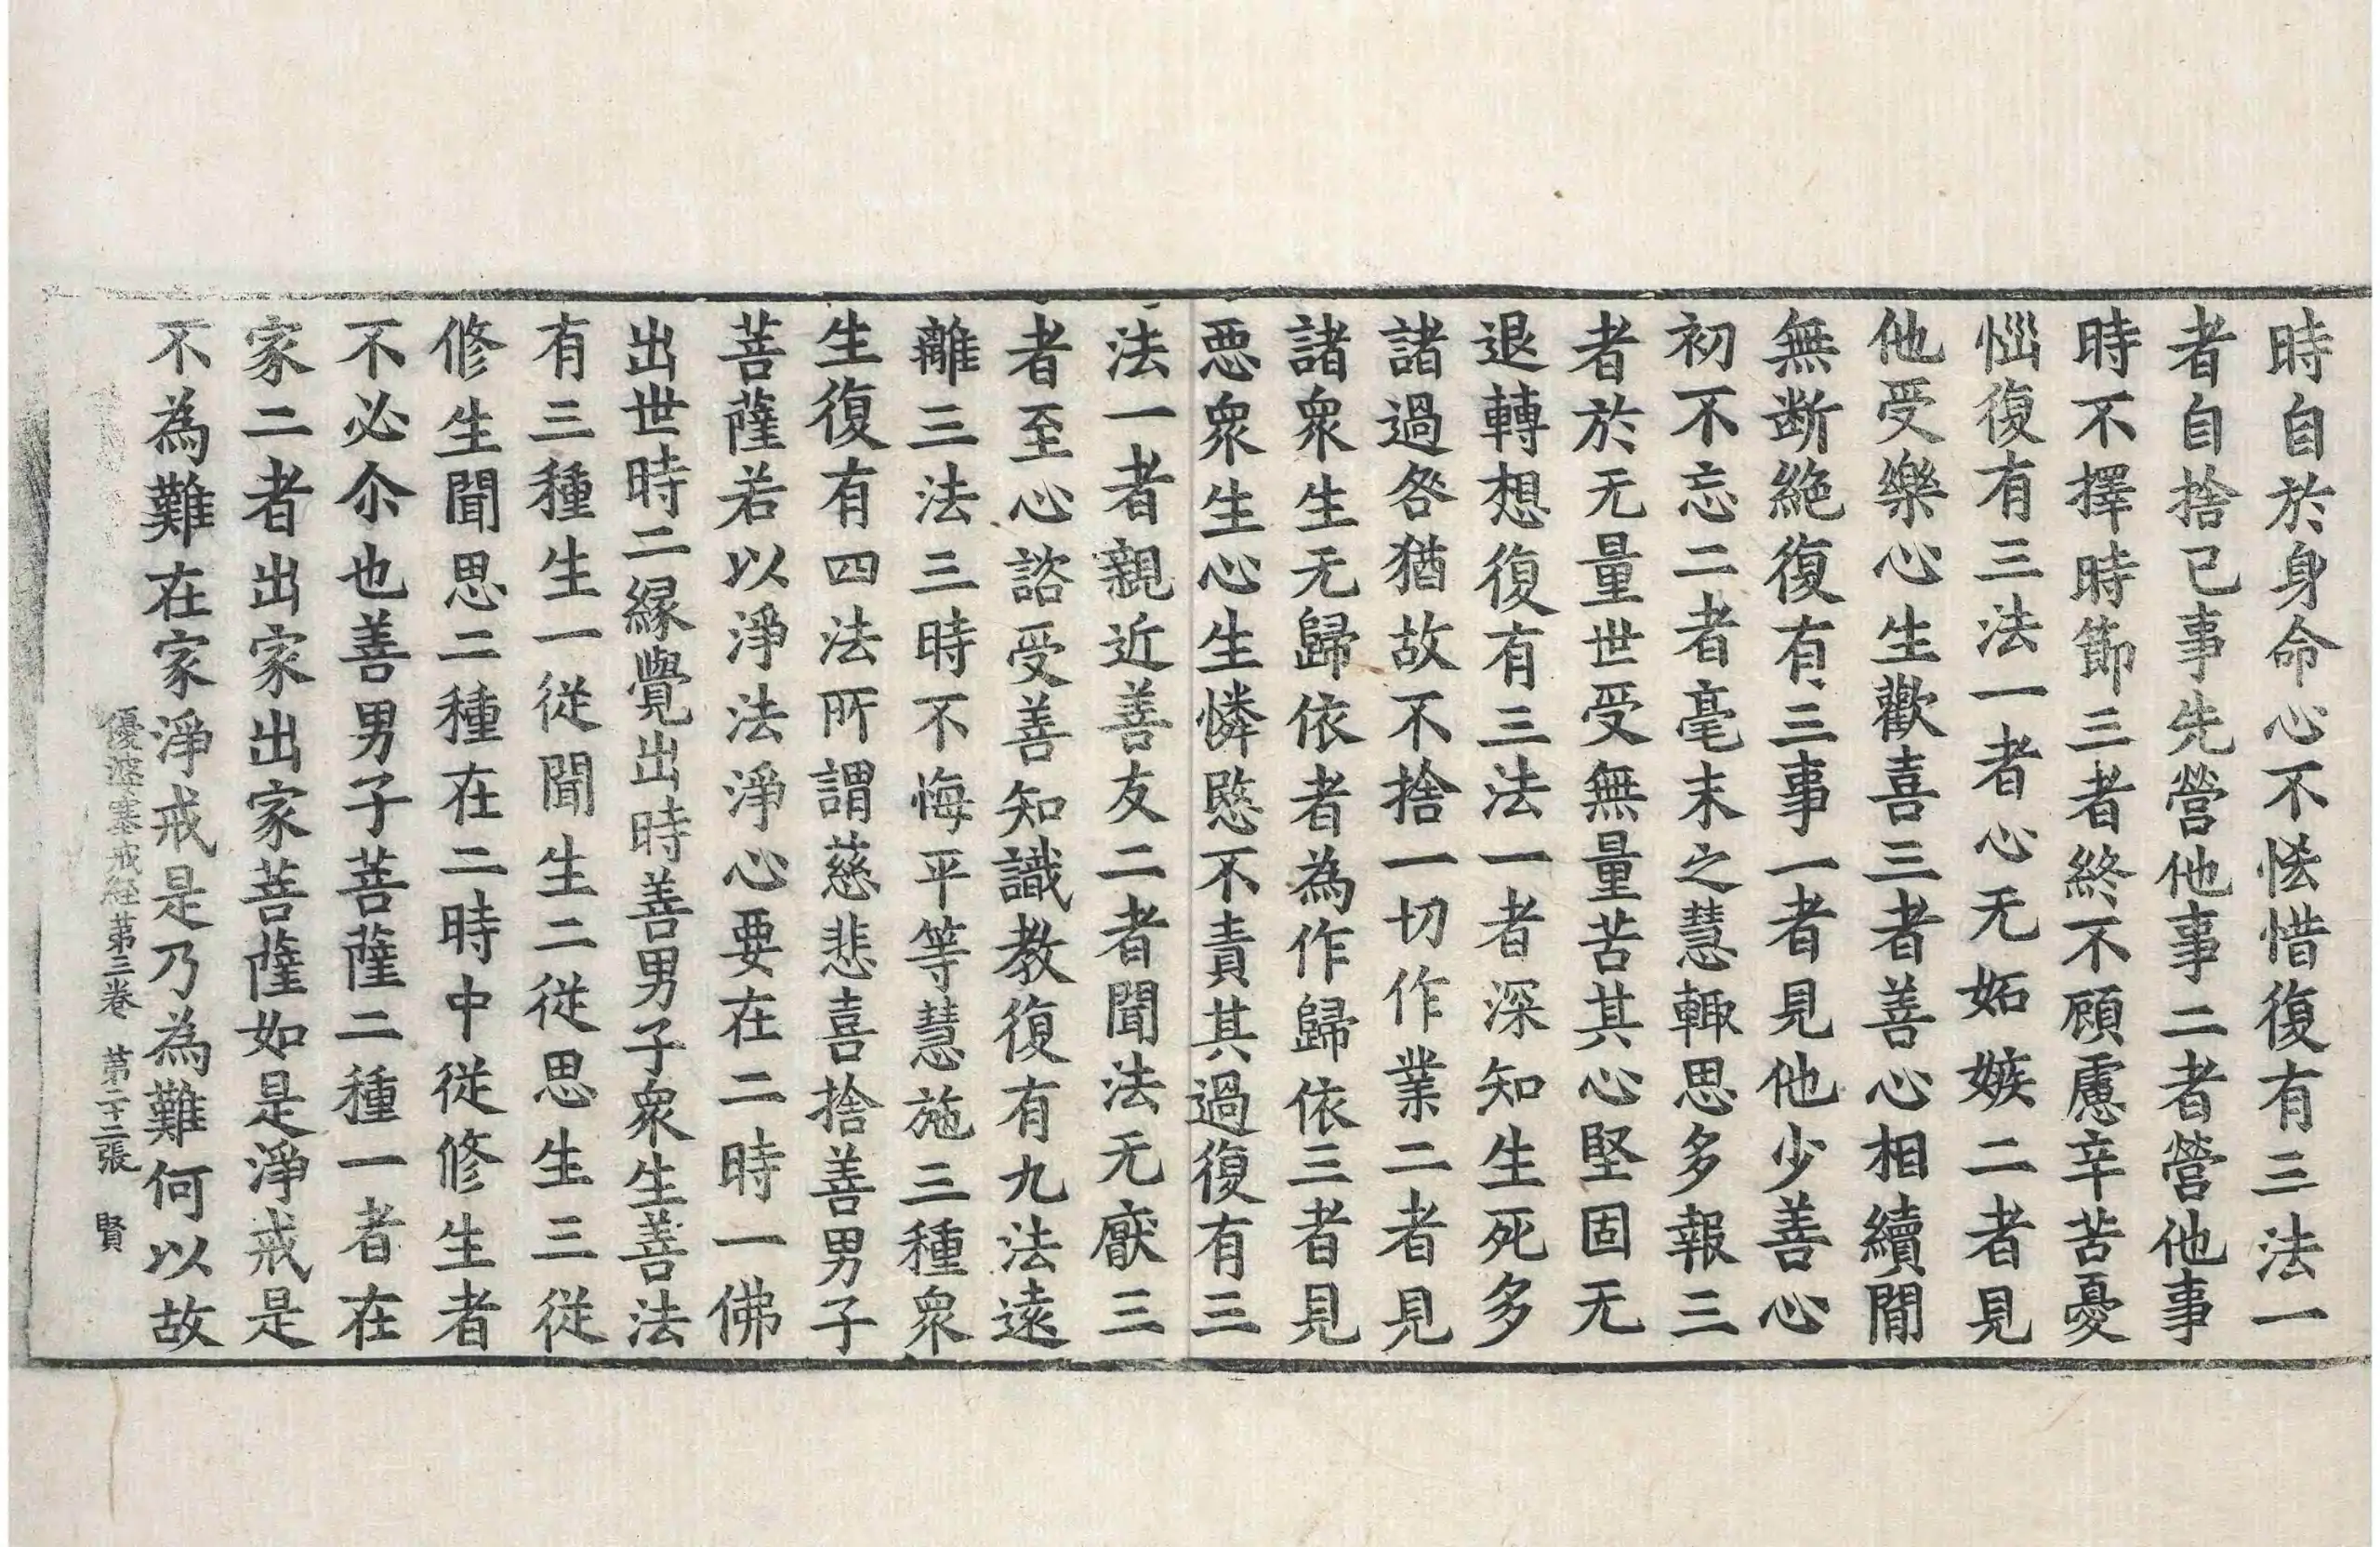 時自於身命心不悋惜復有三法一
者自捨已事先營他事二者營他事
時不擇時節三者終不顧慮辛苦憂
惱復有三法一者心无妬嫉二者見
他受樂心生歡喜三者善心相續間
無断絶復有三事一者見他少善心
初不忘二者毫末之慧輙思多報三
者於无量世受無量苦其心堅固无
退轉想復有三法一者深知生死多
諸過咎猶故不捨一切作業二者見
諸衆生无歸依者為作歸依三者見
惡衆生心生憐愍不責其過復有三
法一者親近善友二者聞法无厭三
者至心諮受善知識教復有九法遠
離三法三時不悔平等慧施三種衆
生復有四法所謂慈悲喜捨善男子
菩薩若以淨法淨心要在二時一佛
出世時二緣覺出時善男子衆生善法
有三種生一從聞生二從思生三從
修生聞思二種在二時中從修生者
不必尒也善男子菩薩二種一者在
家二者出家出家菩薩如是淨戒是
不為難在家淨戒是乃為難何以故
優婆塞戒經第三卷 第二十二張 賢